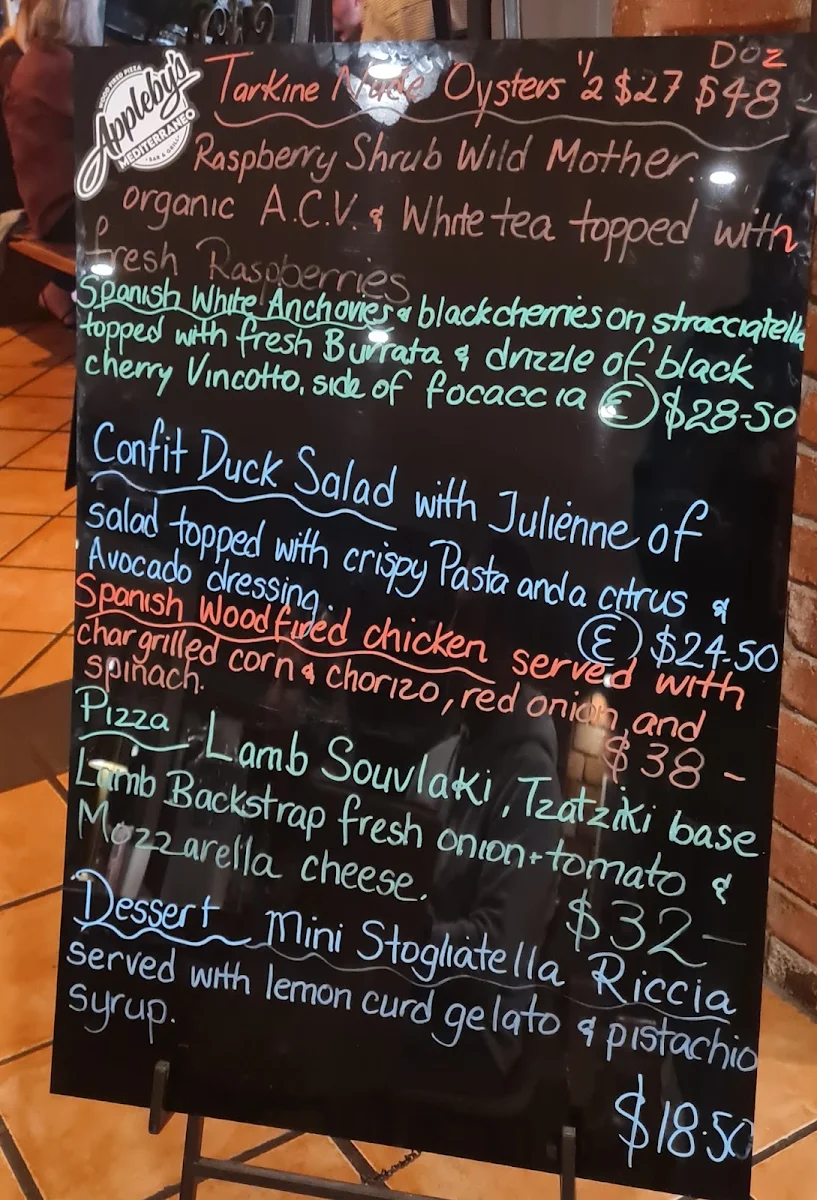 D'oz
Tarkine Nude Oysters 1/2 $27 $48-
WOOD FIRED PIZZA
Appleby's
MEDITERRANEO
BAR & GRILL
Raspberry Shrub Wild Mother.
organic A.C.V. & White tea topped with
fresh Raspberries
Spanish White Anchovies & blackcherries on stracciatella
topped with fresh Burrata & drizzle of black
cherry Vincotto, side of focaccia (E) $28-50
Confit Duck Salad with Julienne of
salad topped with crispy Pasta and a citrus &
Avocado dressing.
(E) $24.50
Spanish Woodfired chicken served with
chargrilled corn & chorizo, red onion and
spinach.
$38-
Pizza Lamb Souvlaki, Tzatziki base
Lamb Backstrap fresh onion + tomato &
Mozzarella cheese.
$32-
Dessert Mini Stogliatella Riccia
served with lemon curd gelato & pistachio
syrup.
$18.50